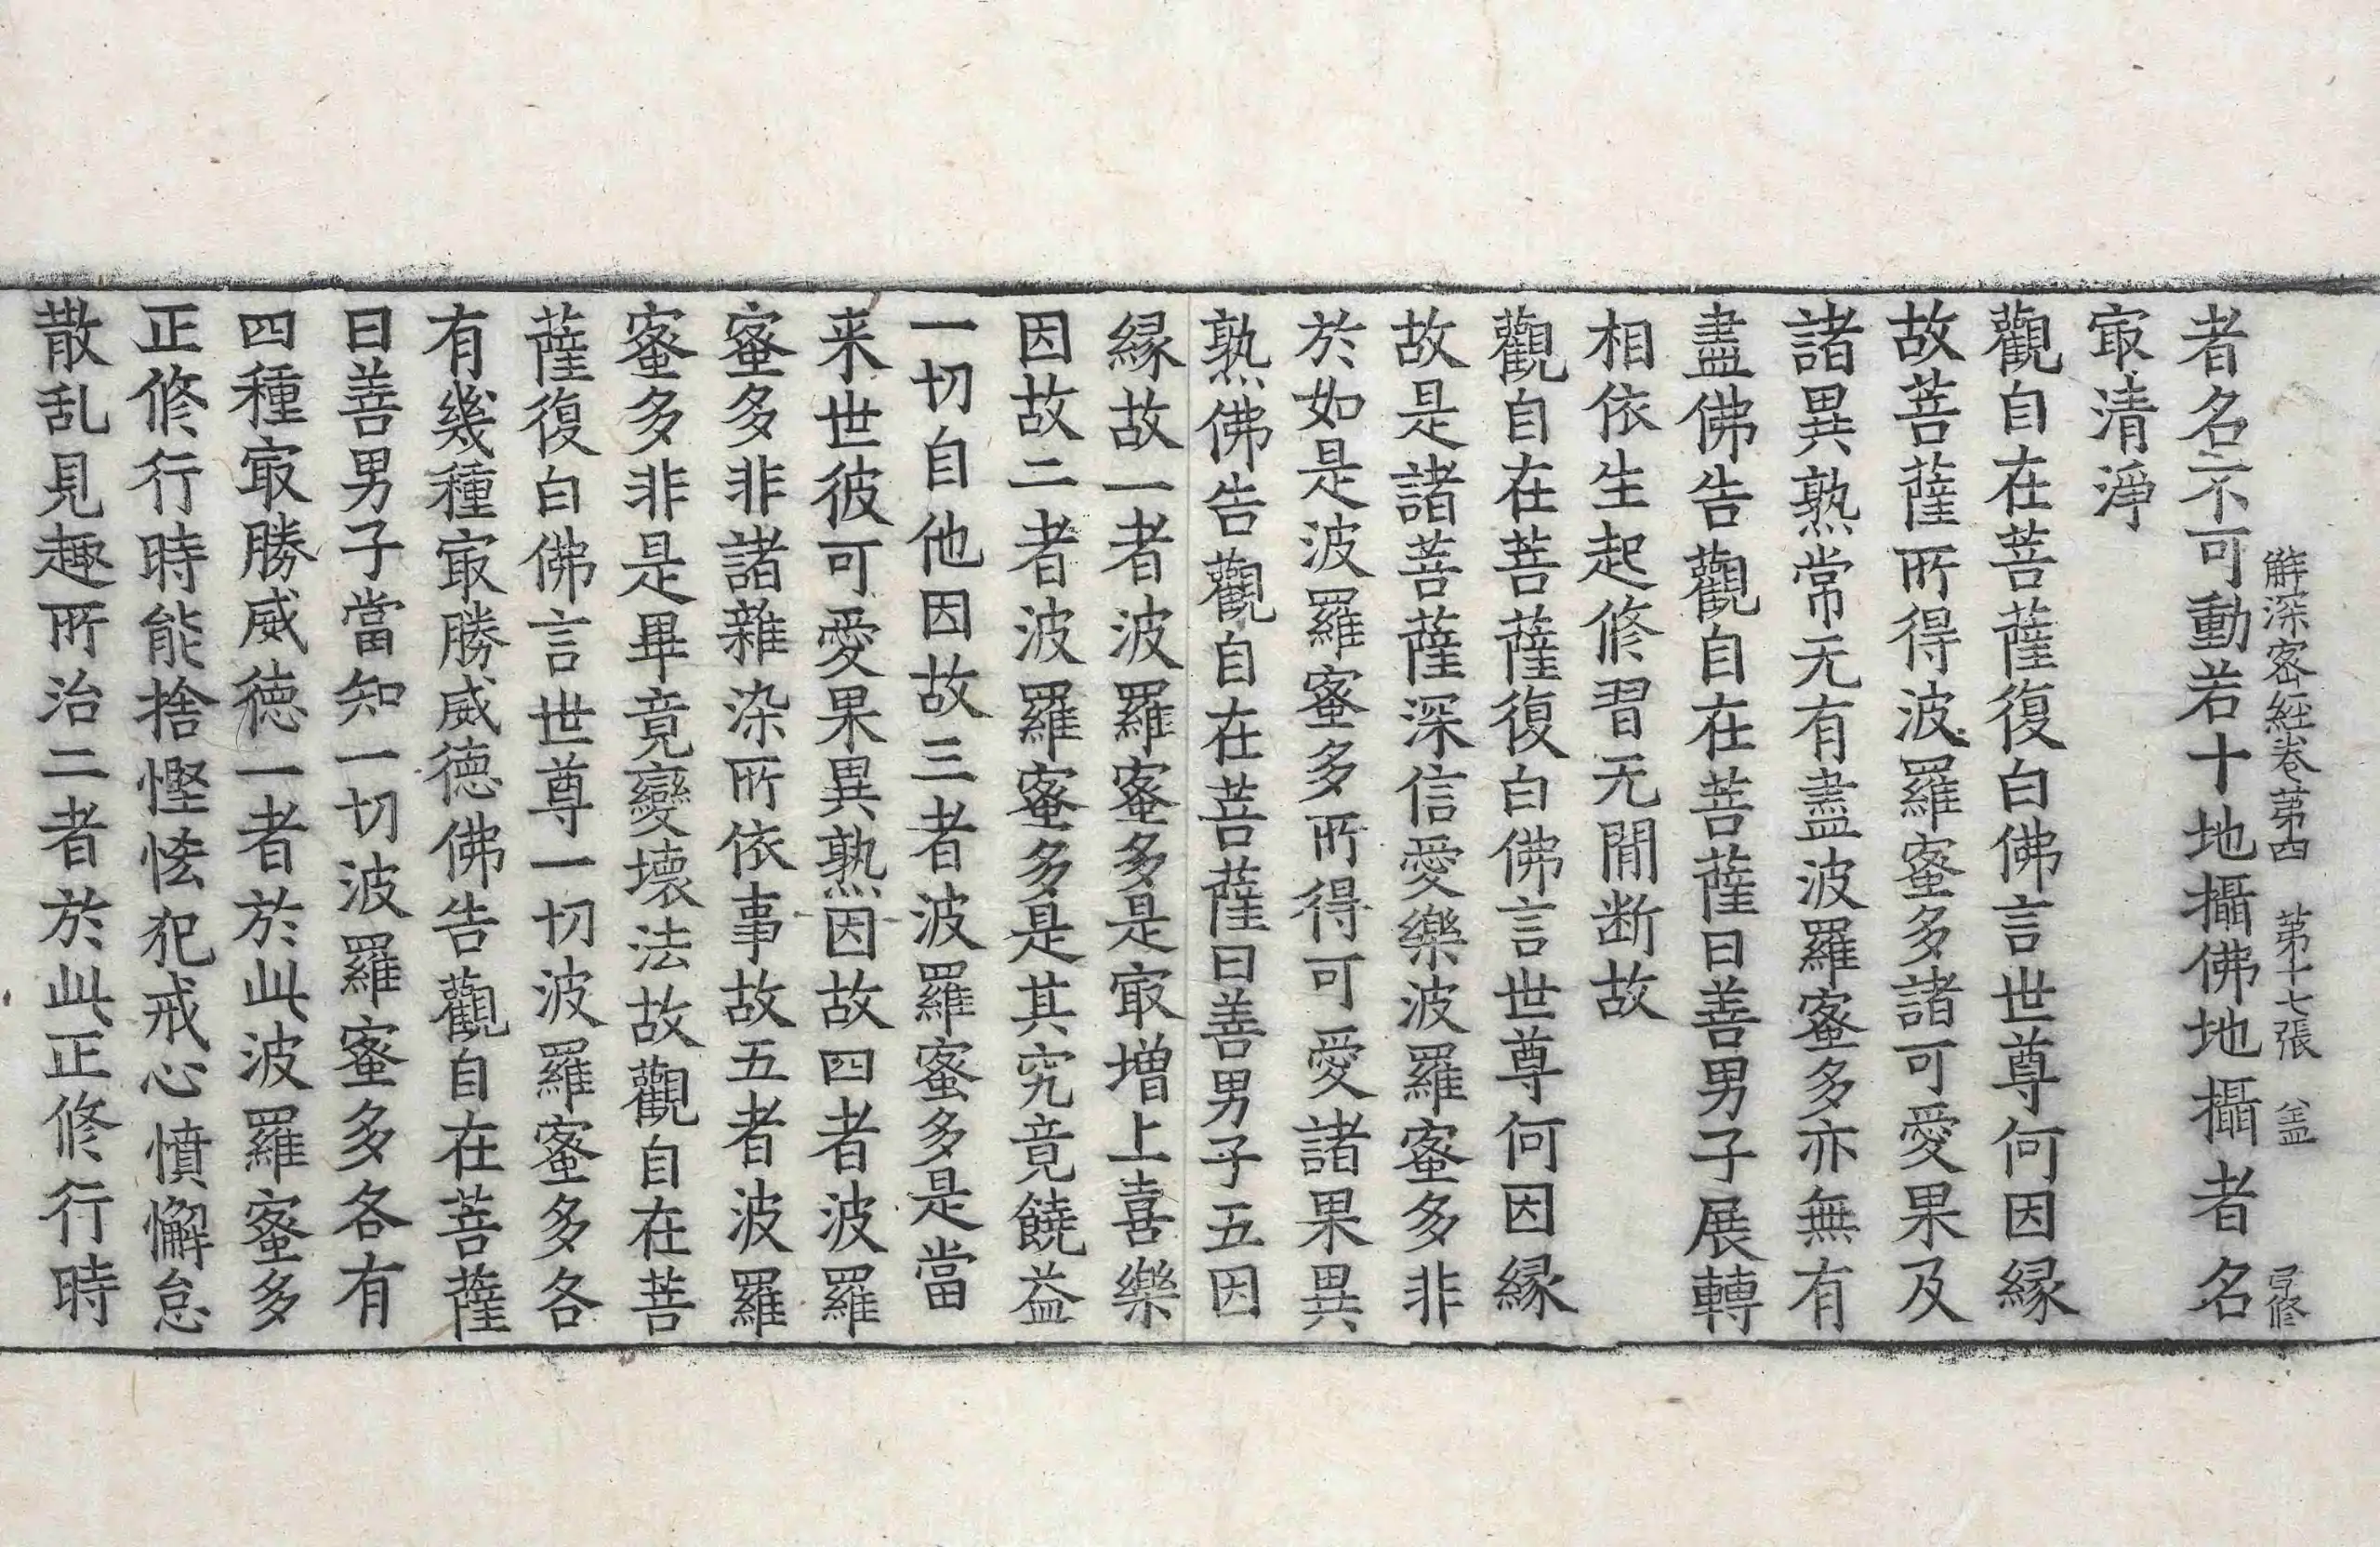 解深密經卷苐四 苐十七張 㿽 修
者名不可動若十地攝佛地攝者名
㝡清淨
觀自在菩薩復白佛言世尊何因縁
故菩薩所得波羅蜜多諸可愛果及
諸異熟常无有盡波羅蜜多亦無有
盡佛告觀自在菩薩曰善男子展轉
相依生起修習无閒断故
觀自在菩薩復白佛言世尊何因縁
故是諸菩薩深信愛樂波羅蜜多非
於如是波羅蜜多所得可愛諸果異
熟佛告觀自在菩薩曰善男子五因
縁故一者波羅蜜多是㝡增上喜樂
因故二者波羅蜜多是其究竟饒益
一切自他因故三者波羅蜜多是當
来世彼可愛果異熟因故四者波羅
蜜多非諸雜染所依事故五者波羅
蜜多非是畢竟變壞法故觀自在菩
薩復白佛言世尊一切波羅蜜多各
有幾種㝡勝威德佛告觀自在菩薩
曰善男子當知一切波羅蜜多各有
四種㝡勝威德一者於此波羅蜜多
正修行時能捨慳悋犯戒心憤懈怠
散乱見趣所治二者於此正修行時